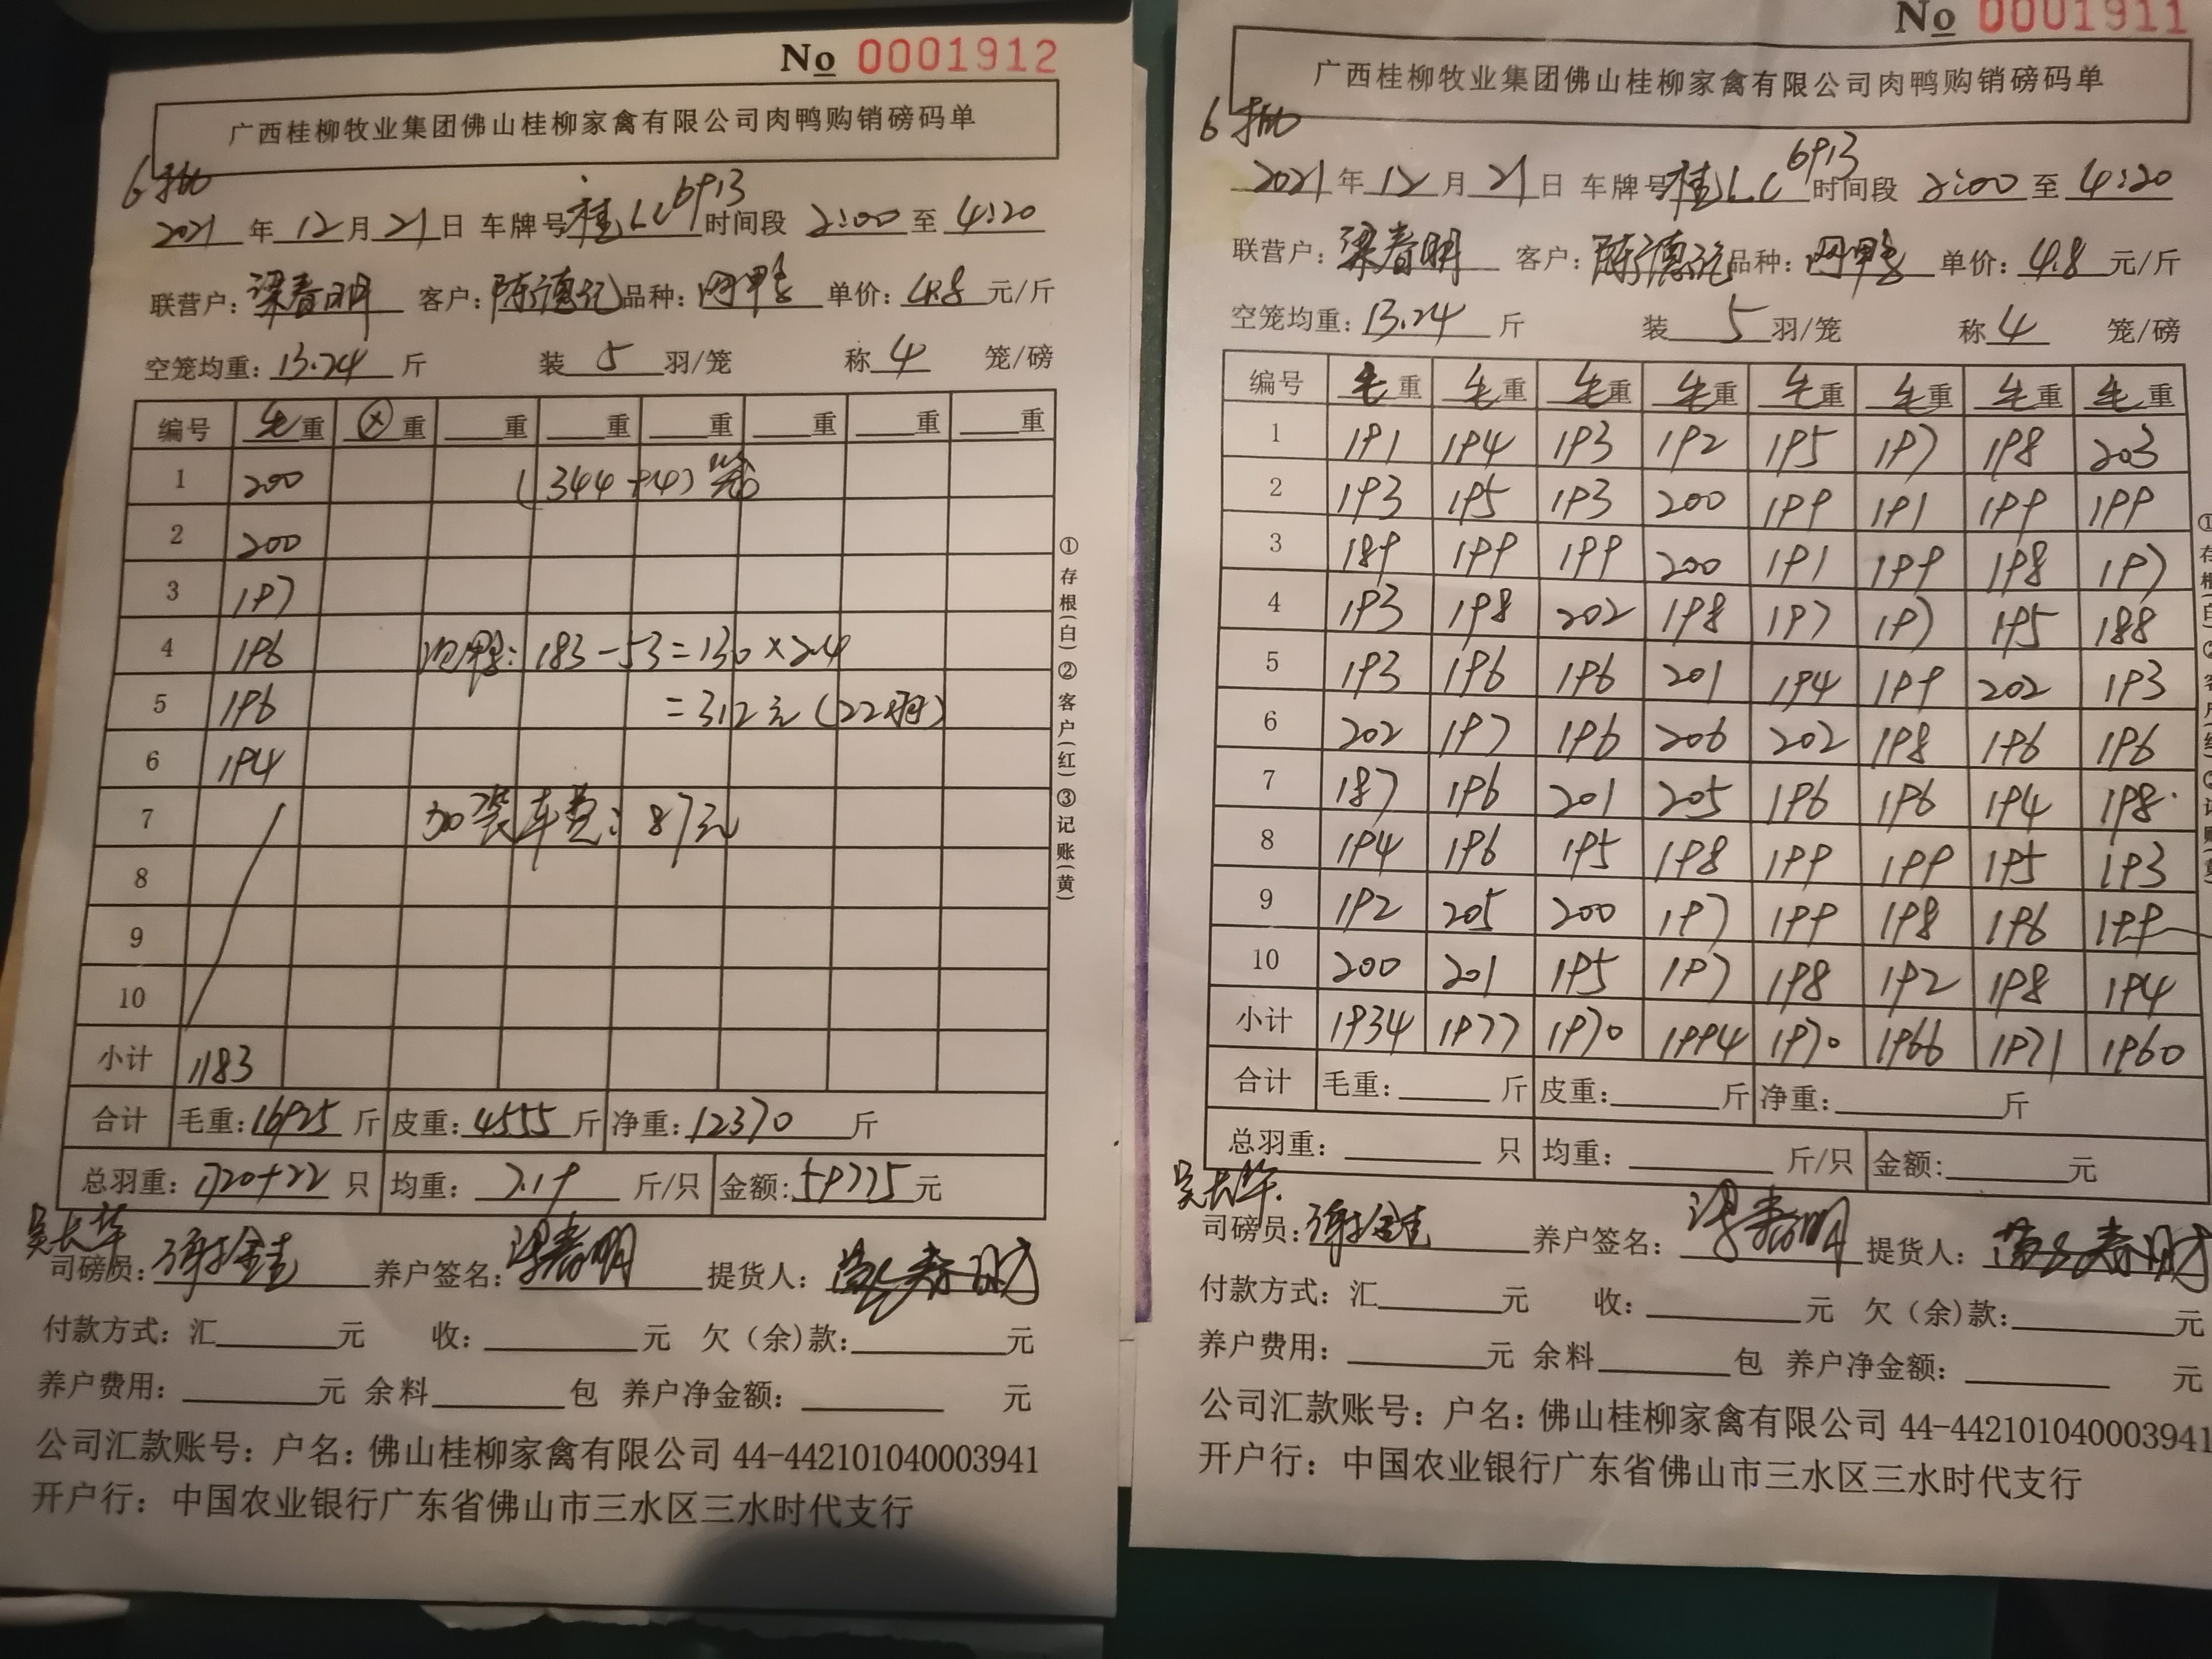 No 0001912
广西桂柳牧业集团佛山桂柳家禽有限公司肉鸭购销磅码单
6批
2021年12月21日 车牌号桂LC6913 时间段 2:00 至 4:20
联营户：梁春明 客户：陈德记 品种：网鸭 单价：4.8 元/斤
空笼均重：13.24 斤 装 5 羽/笼 称 4 笼/磅
编号 毛重 ⊗重 重 重 重 重 重 重
1 200 (344+4)笼
2 200
3 197
4 196 沙鸭：183-53=130×2.4
5 196 =312元(22羽)
6 194
7 加装车费：87元
8
9
10
小计 1183
合计 毛重：16925 斤 皮重：4555 斤 净重：12370 斤
总羽重：1720+22 只 均重：7.19 斤/只 金额：59775 元
吴长华
司磅员： 养户签名：梁春明 提货人：
付款方式：汇 元 收： 元 欠（余)款： 元
养户费用： 元 余料 包 养户净金额： 元
公司汇款账号：户名：佛山桂柳家禽有限公司 44-442101040003941
开户行：中国农业银行广东省佛山市三水区三水时代支行
①存根(白)②客户(红)③记账(黄)
No 0001911
广西桂柳牧业集团佛山桂柳家禽有限公司肉鸭购销磅码单
6批
2021年12月21日 车牌号桂LC6913 时间段 2:00 至 4:20
联营户：梁春明 客户：陈德记 品种：网鸭 单价：4.8 元/斤
空笼均重：13.24 斤 装 5 羽/笼 称 4 笼/磅
编号 毛重 毛重 毛重 毛重 毛重 毛重 毛重 毛重
1 191 194 193 192 195 197 198 203
2 193 195 193 200 199 191 199 199
3 189 199 199 200 191 199 198 197
4 193 198 202 198 197 197 195 188
5 193 196 196 201 194 199 202 193
6 202 197 196 206 202 198 196 196
7 187 196 201 205 196 196 194 198
8 194 196 195 198 199 199 195 193
9 192 205 200 197 199 198 196 199
10 200 201 195 197 198 192 198 194
小计 1934 1977 1970 1994 1970 1966 1971 1960
合计 毛重： 斤 皮重： 斤 净重： 斤
总羽重： 只 均重： 斤/只 金额： 元
吴长华
司磅员： 养户签名：梁春明 提货人：
付款方式：汇 元 收： 元 欠（余)款： 元
养户费用： 元 余料 包 养户净金额： 元
公司汇款账号：户名：佛山桂柳家禽有限公司 44-442101040003941
开户行：中国农业银行广东省佛山市三水区三水时代支行